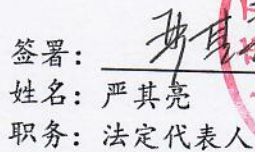 签署：
姓名：严其亮
职务：法定代表人